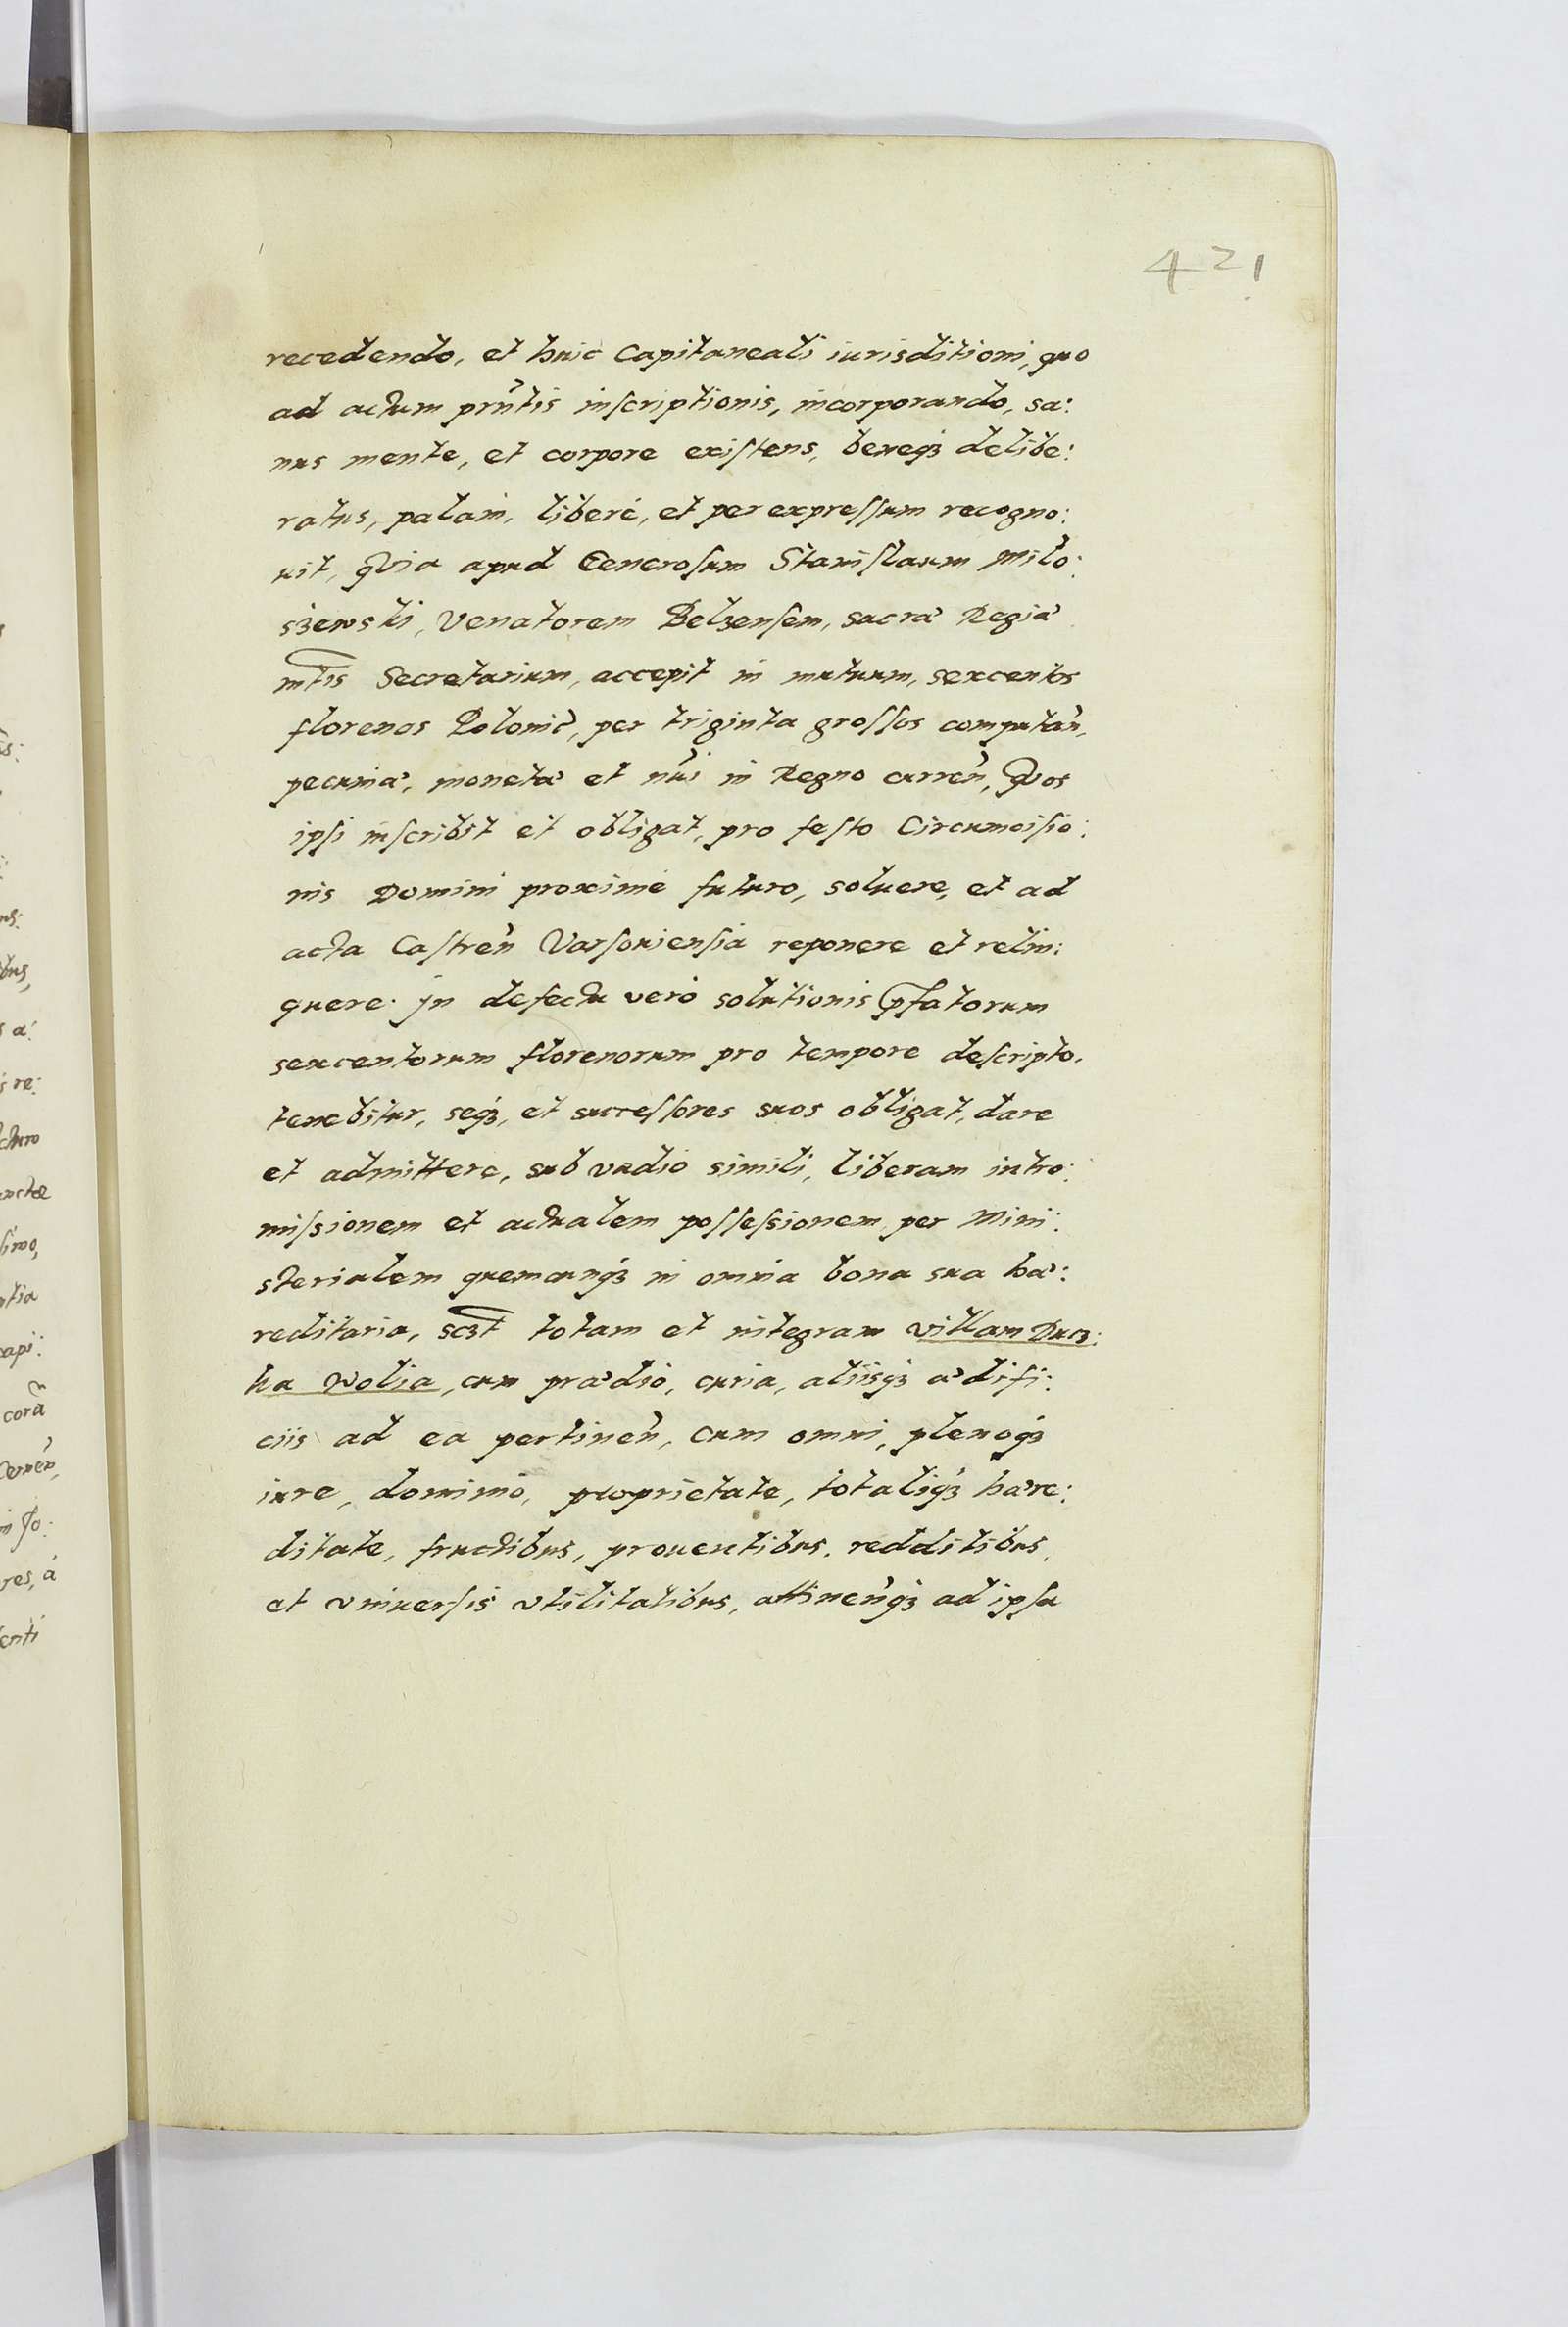 421
recedendo, et huic Capitaneali iurisditioni, quo
ad actum prñtis inſcriptionis, incorporando, sa:
nus mente, et corpore exiſtens, beneqȝ delibe:
ratus, palam, liberé, et per expreſſum recogno:
uit, Quia apud Generoſum Staniſlaum Milo:
szewski, Venatorem Belzenſem, sacræ Regiæ
mtis Secretarium, accepit in mutuum, sexcentos
florenos Polonić, per triginta groſſos computań,
pecuniæ, monetæ et nũi in Regno curreń, Quos
ipſi inſcribit et obligat, pro feſto Circumciſio:
nis Domini proximé futuro, soluere, et ad
acta Caſtreń Varſouienſia reponere et relin:
quere. Jn defectu veró solutionis pfatorum
sexcentorum florenorum pro tempore deſcripto.
tenebitur, seqȝ, et succeſſores suos obligat, dare
et admittere, sub vadio simili, liberam intro:
miſsionem et actualem poſſeſsionem per Mini:
sterialem quemcunqȝ in omnia bona sua hæ:
reditaria, sczt totam et integram villam Ducz:
ka Wolia, cum prædio, curia, aliisqȝ ædifi:
ciis ad ea pertineń, cum omni, plenoqȝ
iure, dominio, proprietate, totaliqȝ hære:
ditate, fructibus, prouentibus, redditibus,
et vniuerſis vtilitatibus, attineńqȝ ad ipſa